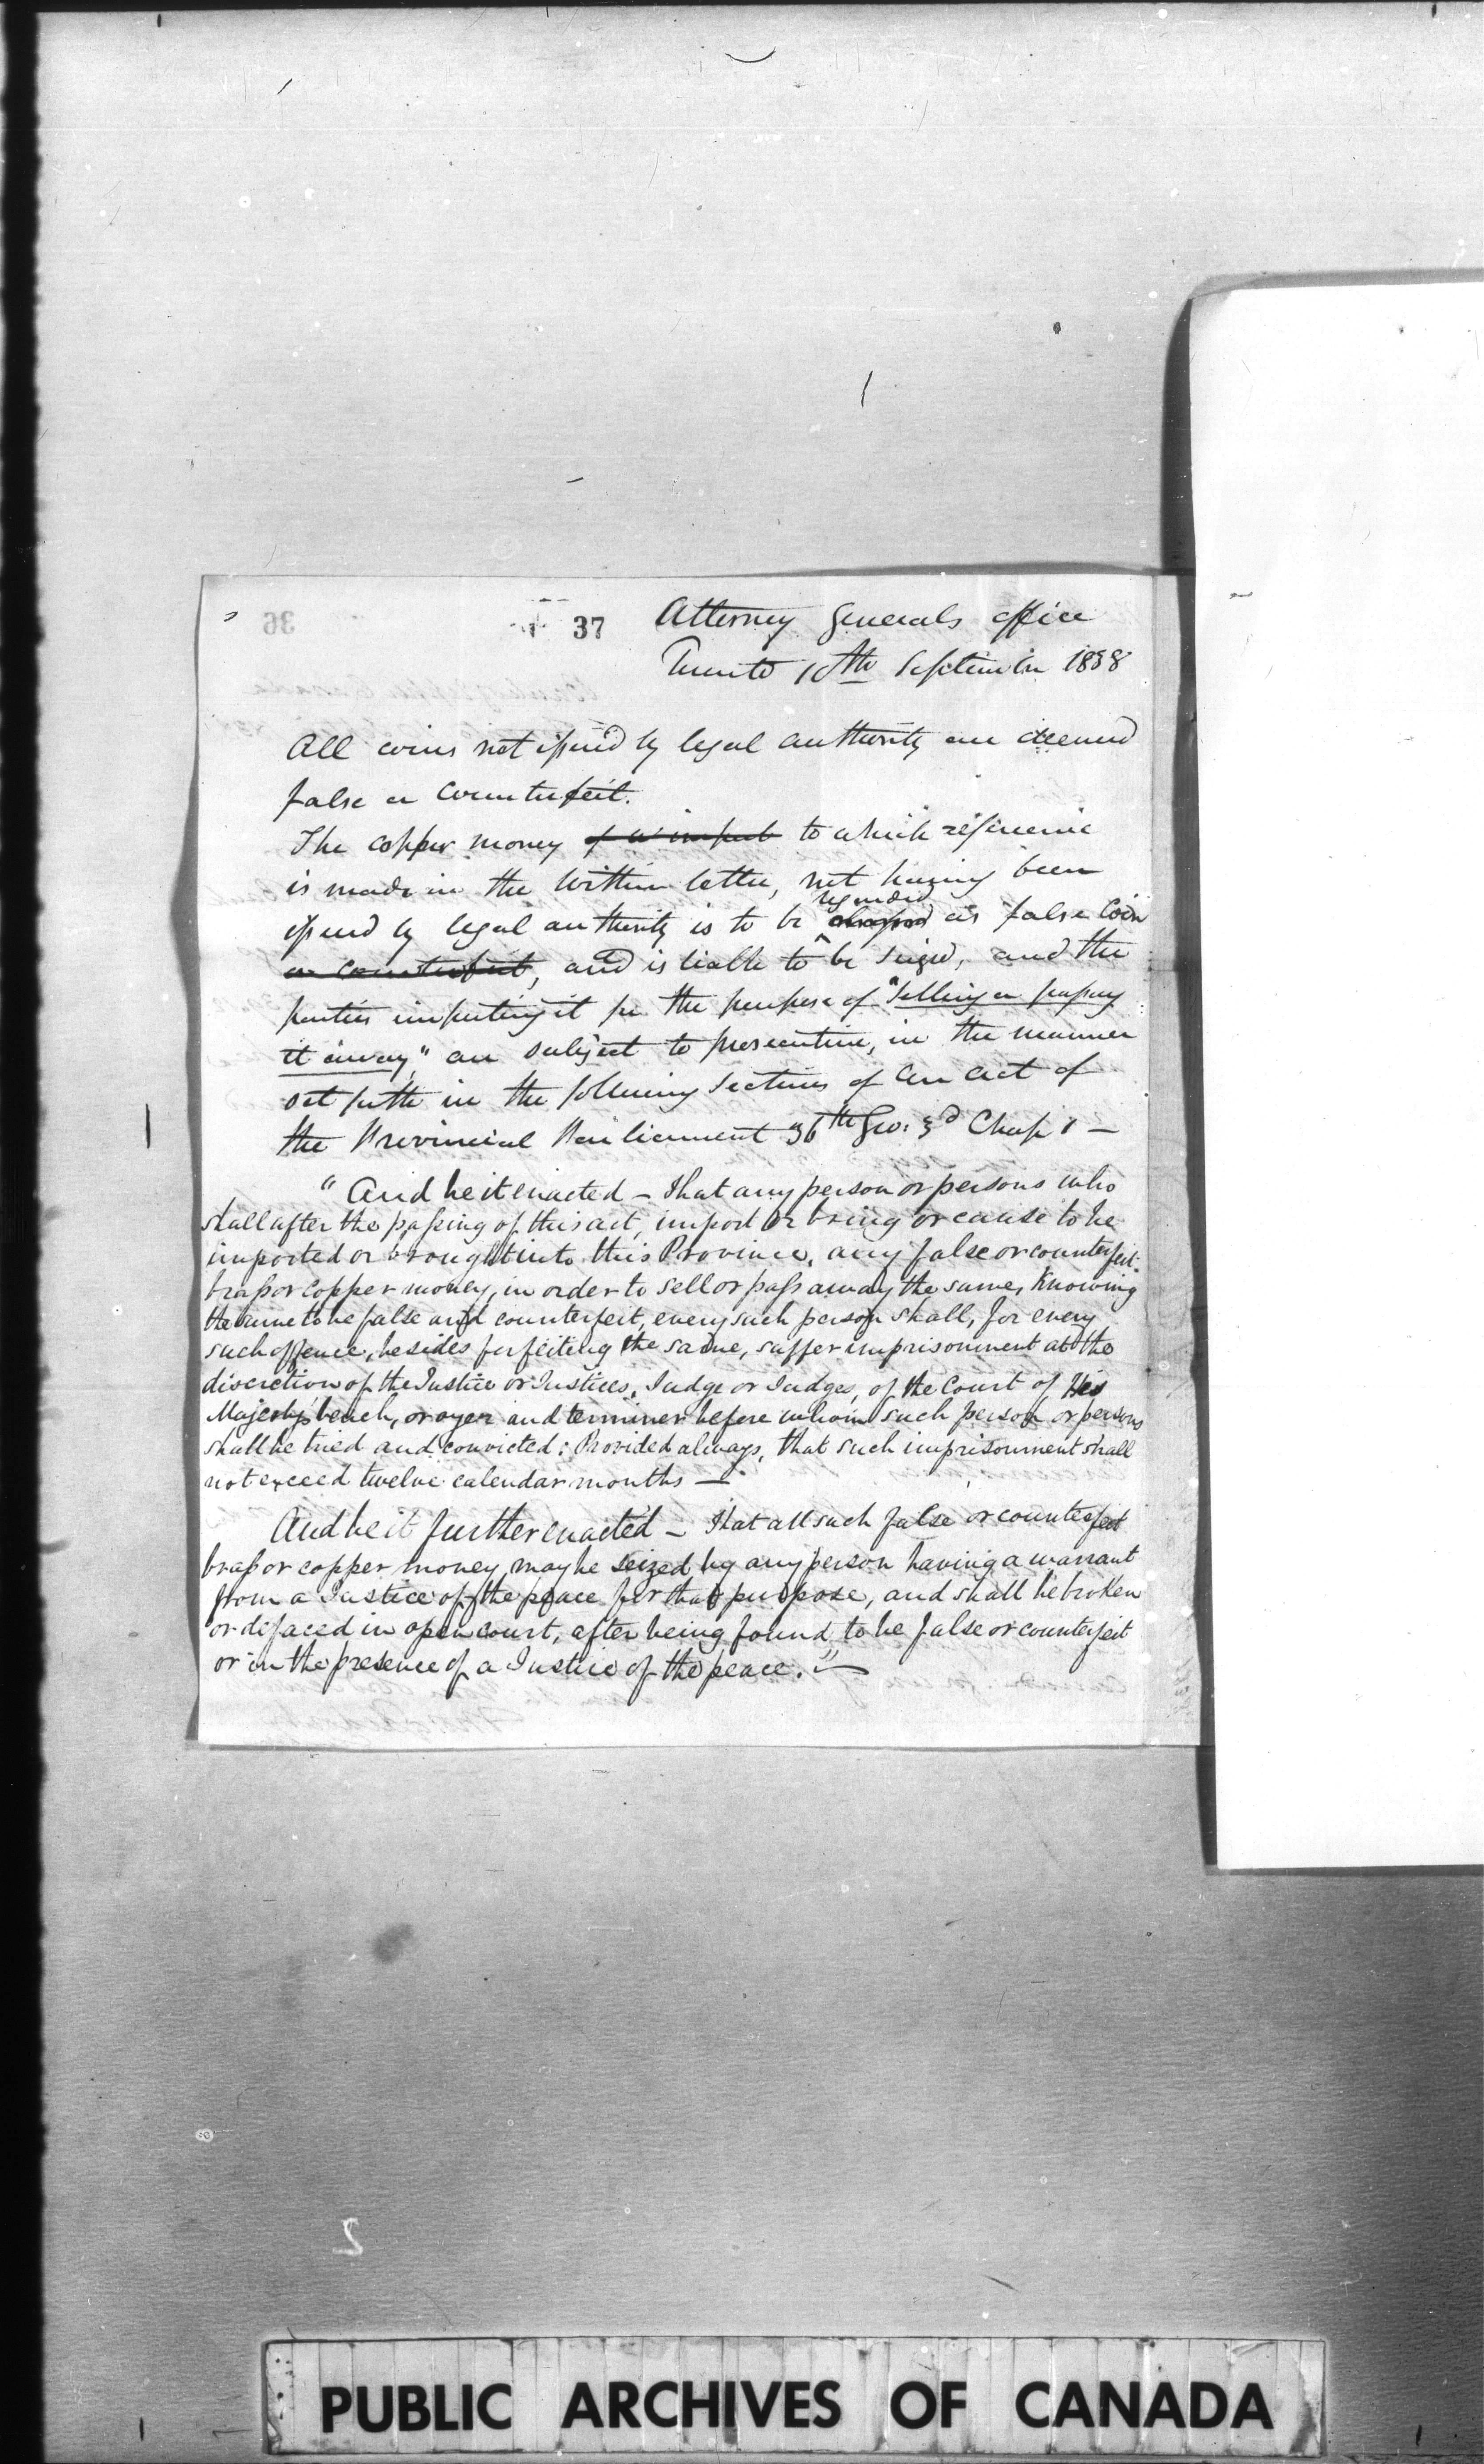 37 Attorney Generals office
Toronto 10th September 1838
All coins not issued by legal authority are deemed
false or counterfeit.
The copper money to which reference
is made in the within letter, not having been
regarded
issued by legal authority is to be as false coin
or counterfeit, and is liable to be seized, and the
parties importing it for the purpose of "selling or passing
it away," are subject to prosecution, in the manner
set forth in the following sections of an act of
the Provincial Parliament 36th Geo: 3d Chap 1 —
"And be it enacted – That any person or persons who
shall after the passing of this act, import or bring or cause to be
imported or brought into this Province, any false or counterfeit
brass or copper money, in order to sell or pass away the same, Knowing
the same to be false and counterfeit, every such person shall, for every
such offence, besides forfeiting the same, suffer imprisonment at the
discretion of the Justice or Justices, Judge or Judges, of the Court of His
Majesty's bench, or oyer and terminer before whom such person or persons
shall be tried and convicted: Provided always, that such imprisonment shall
not exceed twelve calendar months —
And be it further enacted – That all such false or counterfeit
brass or copper money may be seized by any person having a warrant
from a Justice of the peace for that purpose, and shall be broken
or defaced in open court, after being found to be false or counterfeit
or in the presence of a Justice of the peace." —
PUBLIC ARCHIVES OF CANADA